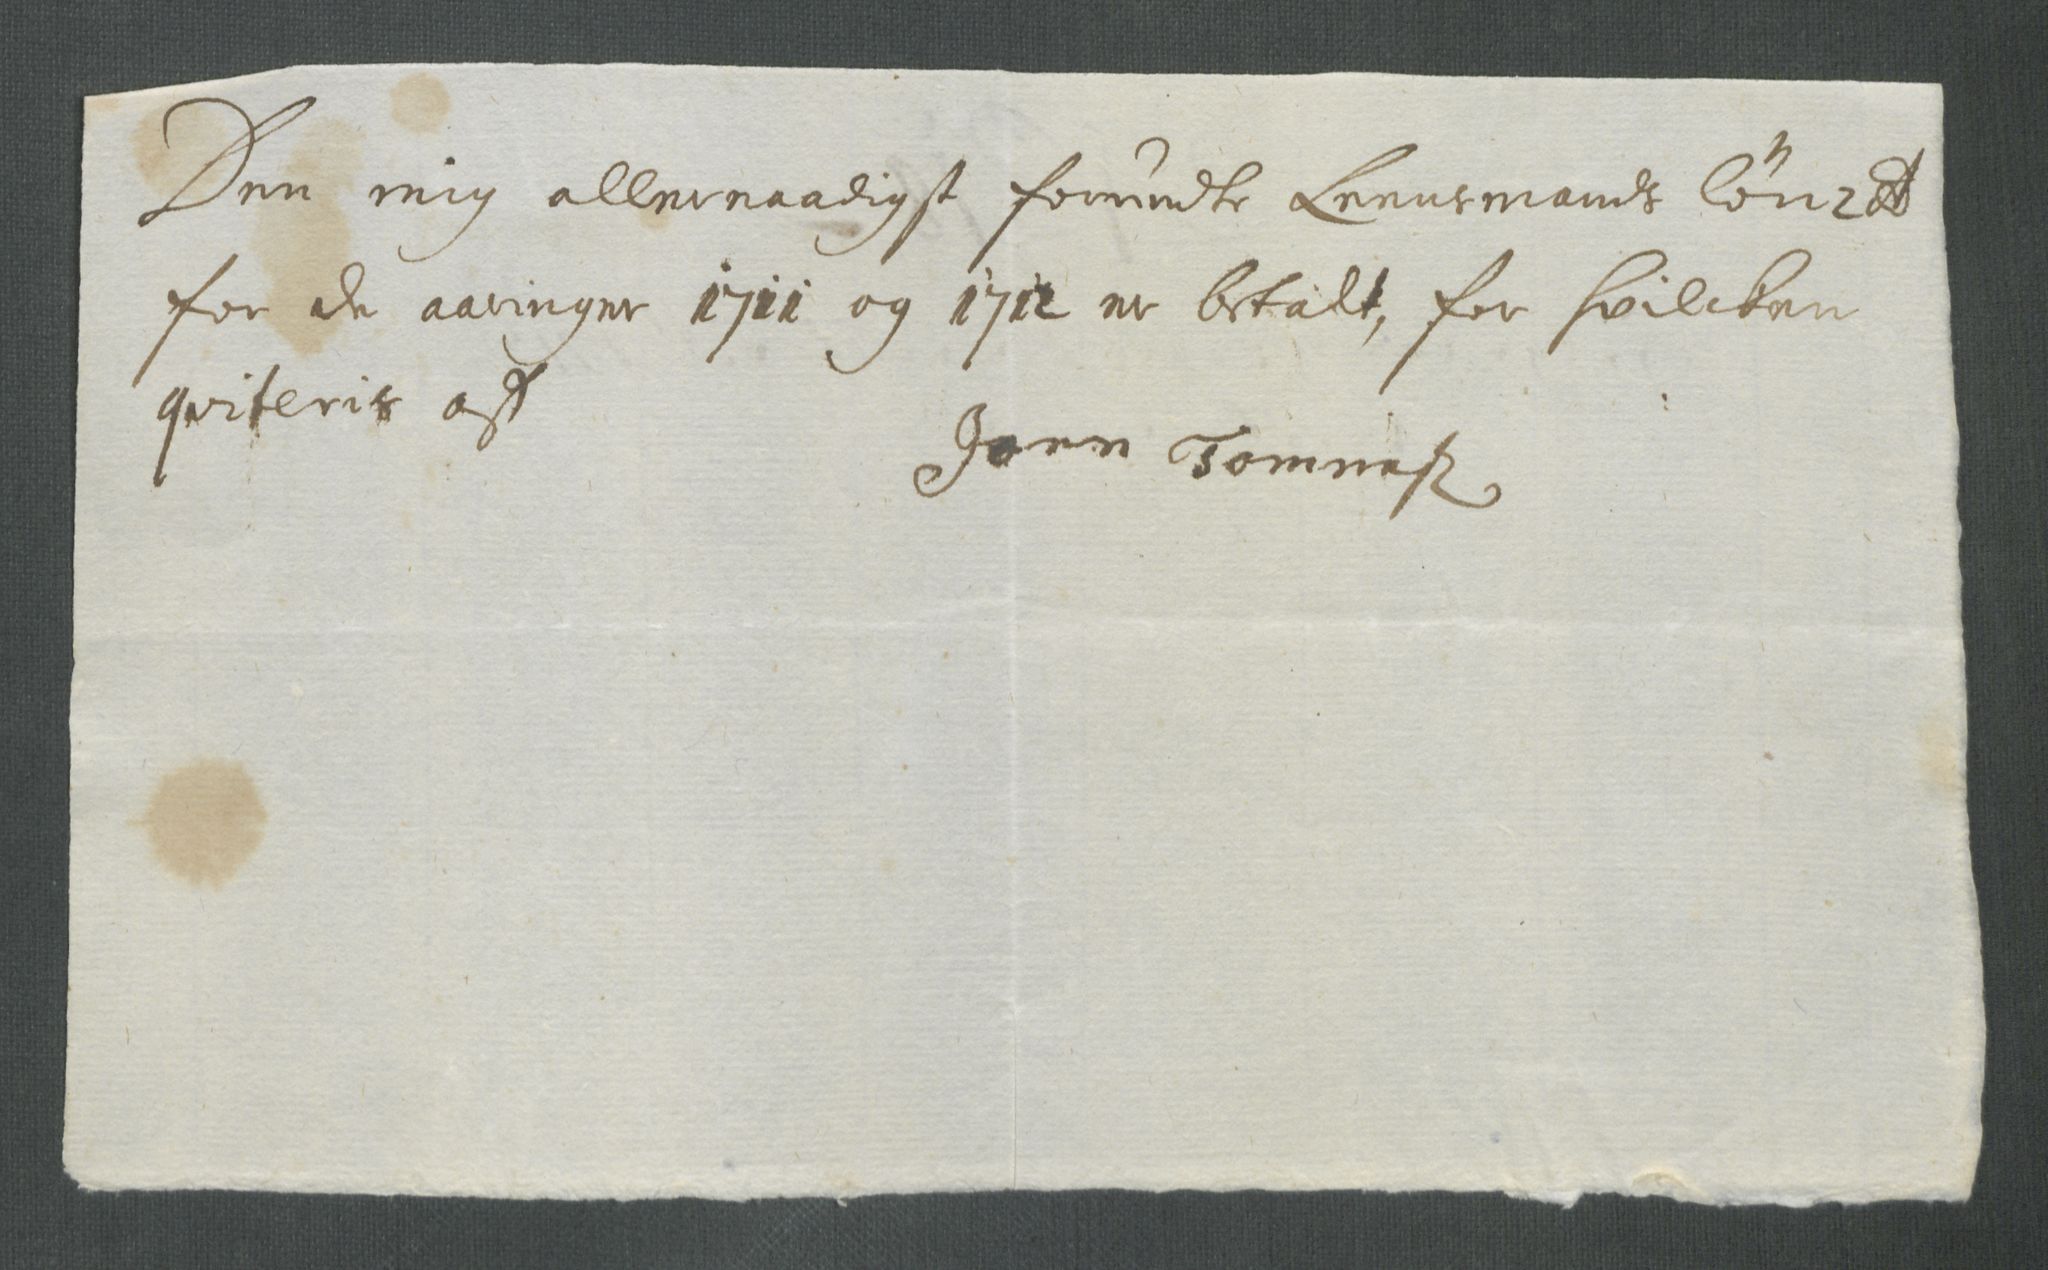 Den mig allernaadigst forundte Leensmands lön
for de aaringer 1711 og 1712 er betalt, for hvilcken
qviteris af
Joen Tommesß